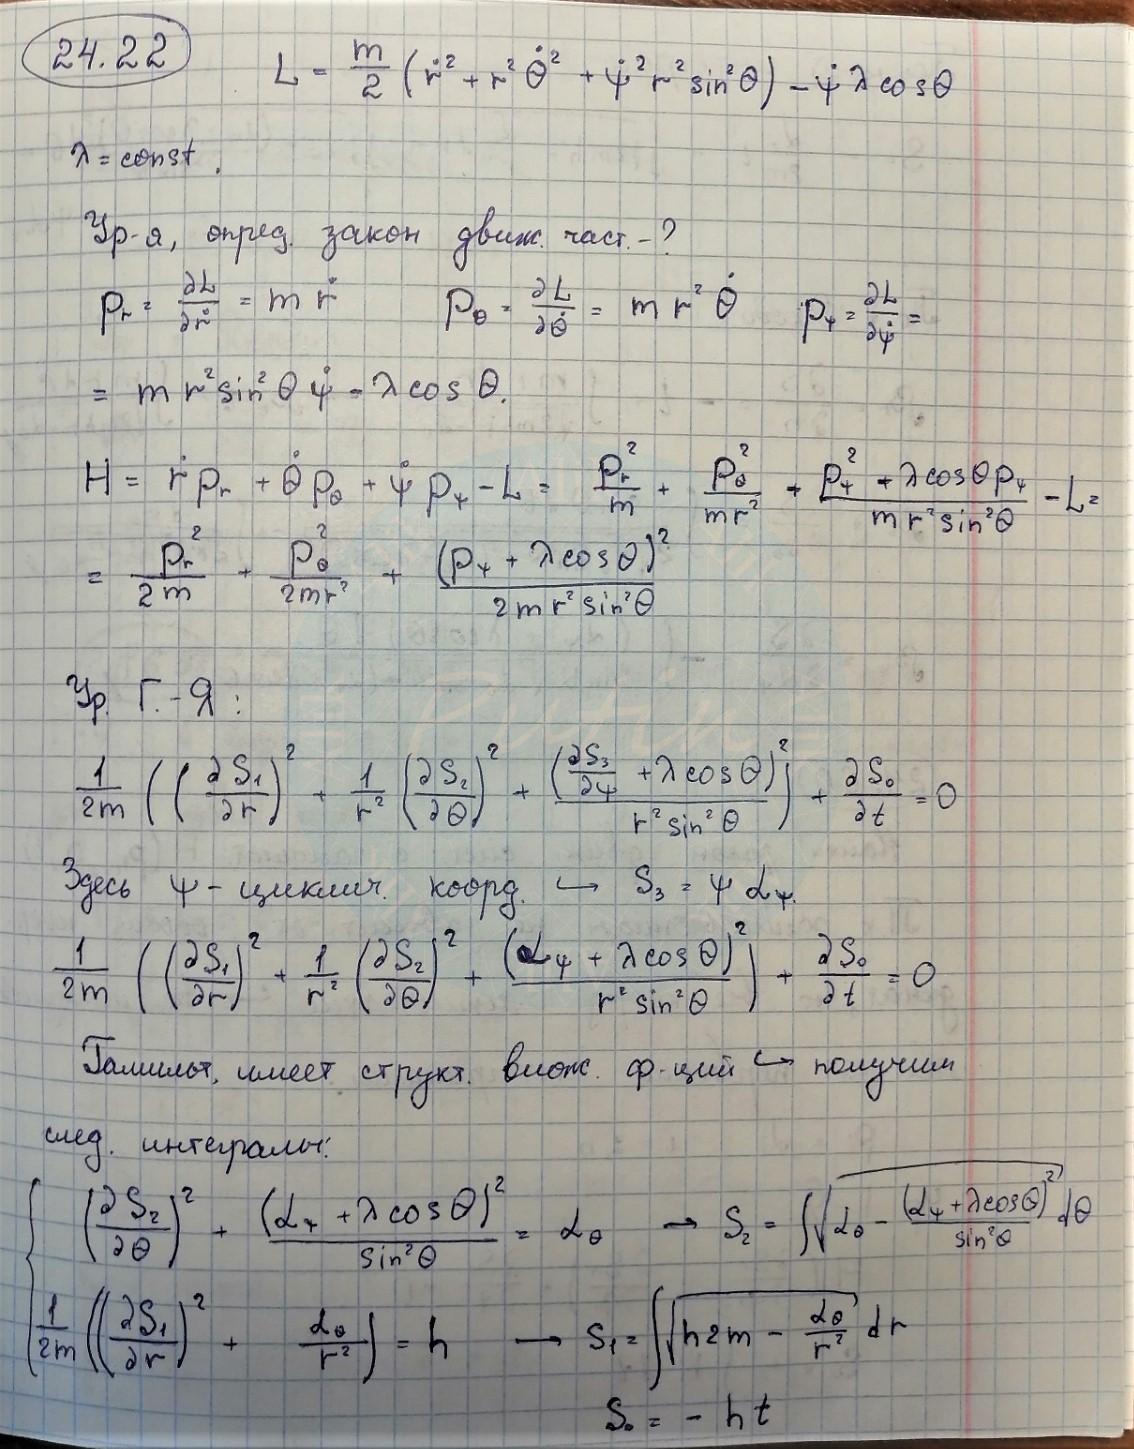 24.22
L = m/2 (ṙ² + r² θ̇² + ψ̇² r² sin²θ) - ψ̇ λ cosθ
λ = const.
Ур-я, опред. закон движ. част. - ?
p_r = ∂L/∂ṙ = m ṙ   p_θ = ∂L/∂θ̇ = m r² θ̇   p_ψ = ∂L/∂ψ̇ =
= m r² sin²θ ψ̇ - λ cos θ.
H = ṙ p_r + θ̇ p_θ + ψ̇ p_ψ - L = p_r²/m + p_θ²/(m r²) + (p_ψ² + λ cosθ p_ψ)/(m r² sin²θ) - L =
= p_r²/(2m) + p_θ²/(2mr²) + (p_ψ + λ cosθ)²/(2 m r² sin²θ)
Ур. Г.-Я:
1/(2m) ((∂S₁/∂r)² + 1/r² (∂S₂/∂θ)² + (∂S₃/∂ψ + λ cosθ)²/(r² sin²θ)) + ∂S₀/∂t = 0
Здесь ψ - циклич. коорд. ↪ S₃ = ψ α_ψ.
1/(2m) ((∂S₁/∂r)² + 1/r² (∂S₂/∂θ)² + (α_ψ + λ cosθ)²/(r² sin²θ)) + ∂S₀/∂t = 0
Гамильт. имеет структ. влож. ф-ций ↪ получим
след. интегралы:
{ (∂S₂/∂θ)² + (α_ψ + λ cosθ)²/sin²θ = α_θ → S₂ = ∫√(α_θ - (α_ψ + λcosθ)²/sin²θ) dθ
1/(2m) ((∂S₁/∂r)² + α_θ/r²) = h → S₁ = ∫√(h2m - α_θ/r²) dr
S₀ = - h t